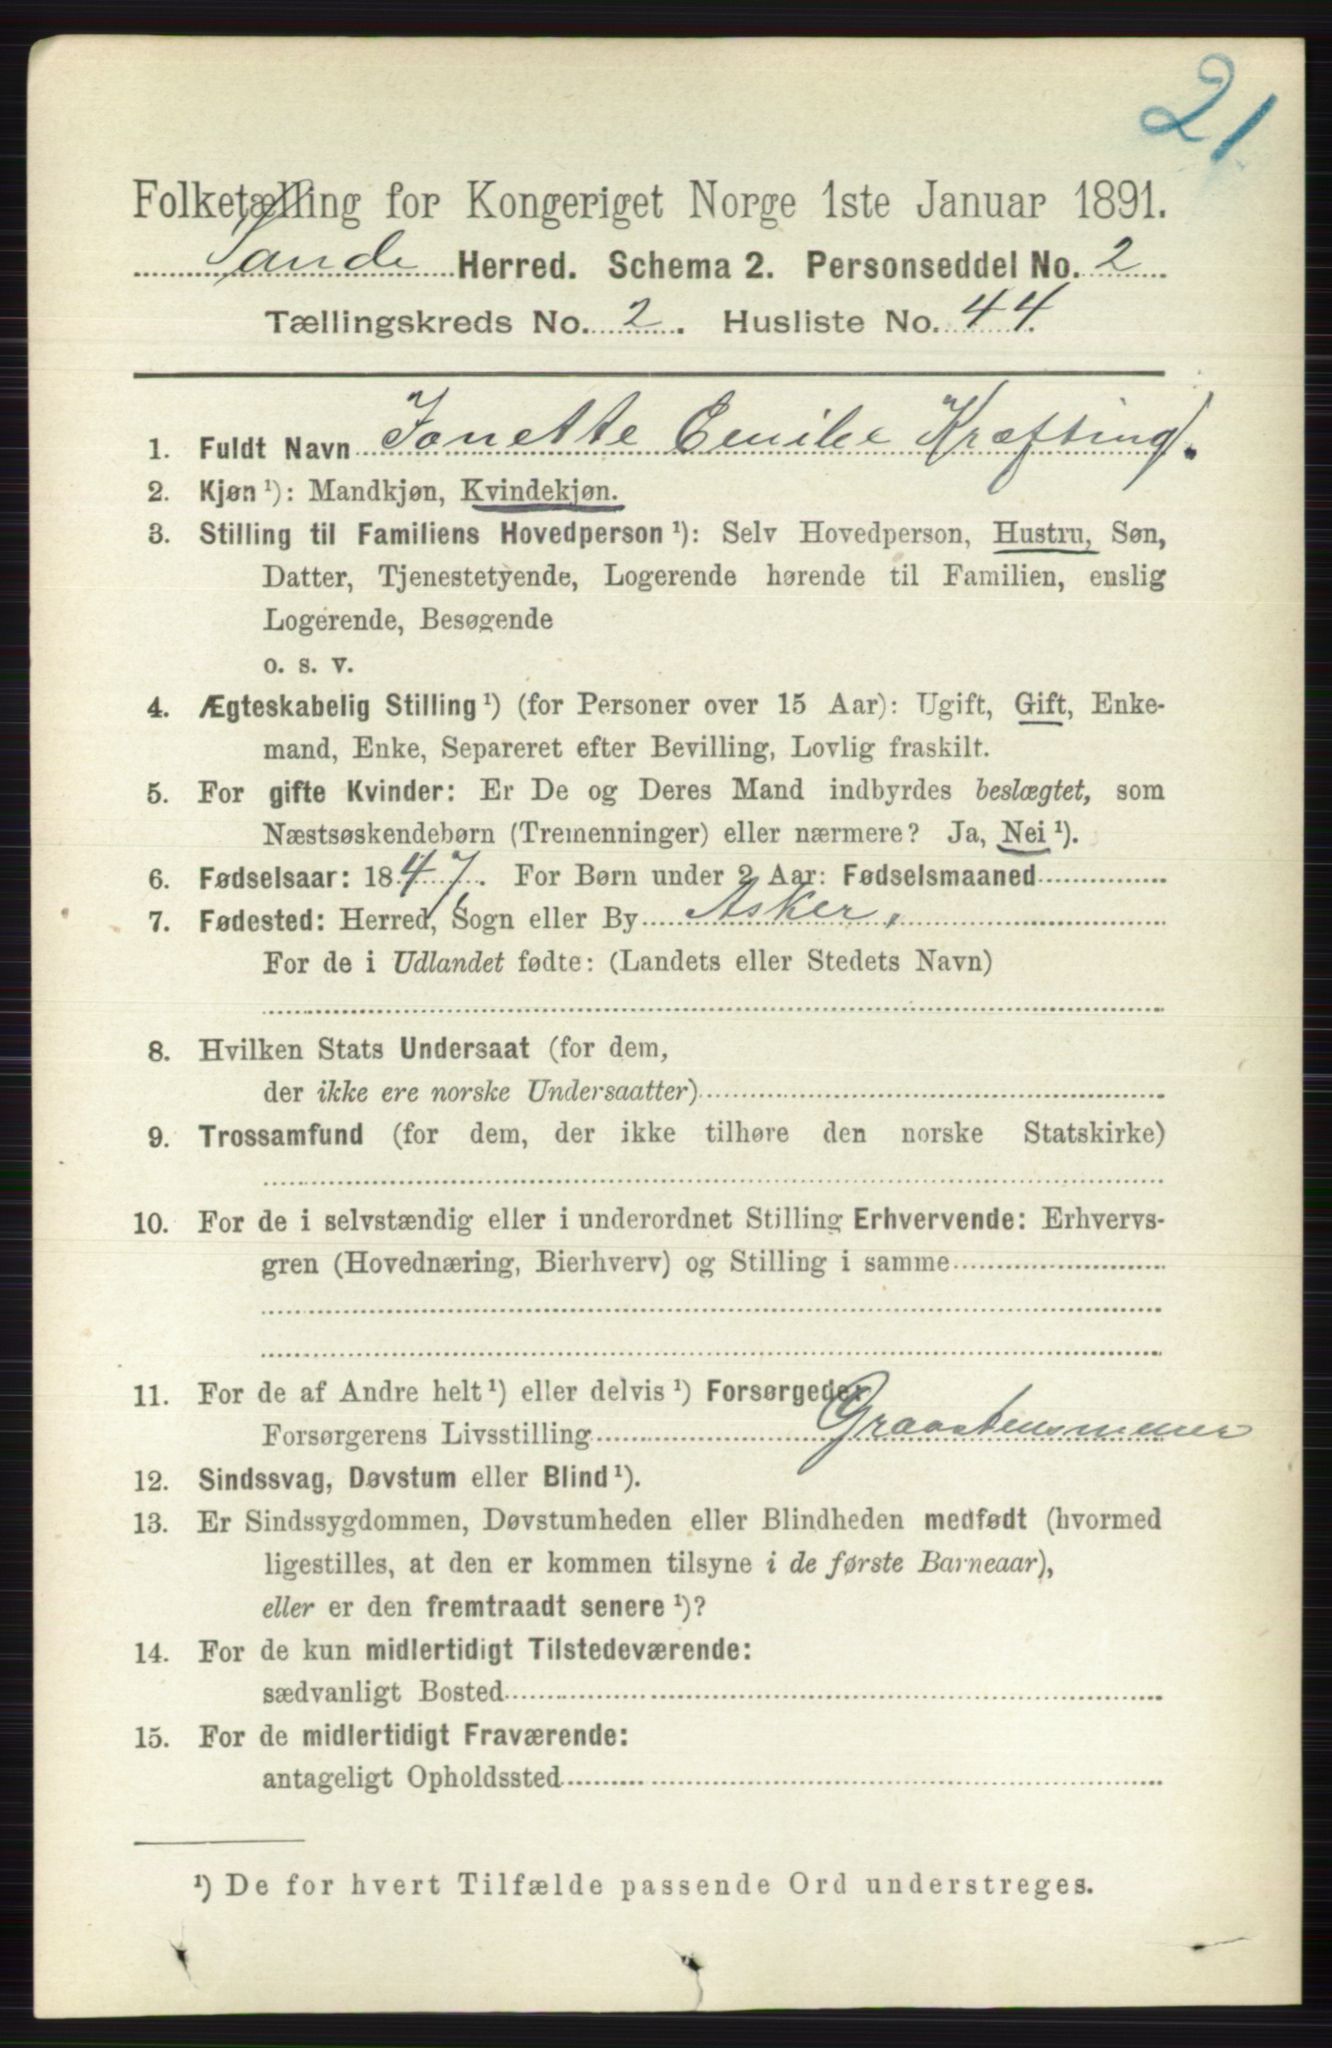 21
Folketælling for Kongeriget Norge 1ste Januar 1891.
Sande Herred. Schema 2. Personseddel No. 2
Tællingskreds No. 2. Husliste No. 44.
1. Fuldt Navn Jonette Emilie Krefting.
2. Kjøn ¹): Mandkjøn, Kvindekjøn.
3. Stilling til Familiens Hovedperson ¹): Selv Hovedperson, Hustru, Søn,
Datter, Tjenestetyende, Logerende hørende til Familien, enslig
Logerende, Besøgende
o. s. v.
4. Ægteskabelig Stilling ¹) (for Personer over 15 Aar): Ugift, Gift, Enke-
mand, Enke, Separeret efter Bevilling, Lovlig fraskilt.
5. For gifte Kvinder: Er De og Deres Mand indbyrdes beslægtet, som
Næstsøskendebørn (Tremenninger) eller nærmere? Ja, Nei ¹).
6. Fødselsaar: 1847. For Børn under 2 Aar: Fødselsmaaned
7. Fødested: Herred, Sogn eller By Asker,
For de i Udlandet fødte: (Landets eller Stedets Navn)
8. Hvilken Stats Undersaat (for dem,
der ikke ere norske Undersaatter)
9. Trossamfund (for dem, der ikke tilhøre den norske Statskirke)
10. For de i selvstændig eller i underordnet Stilling Erhvervende: Erhvervs-
gren (Hovednæring, Bierhverv) og Stilling i samme
11. For de af Andre helt ¹) eller delvis ¹) Forsørgede:
Forsørgerens Livsstilling
12. Sindssvag, Døvstum eller Blind ¹).
13. Er Sindssygdommen, Døvstumheden eller Blindheden medfødt (hvormed
ligestilles, at den er kommen tilsyne i de første Barneaar),
eller er den fremtraadt senere ¹)?
14. For de kun midlertidigt Tilstedeværende:
sædvanligt Bosted
15. For de midlertidigt Fraværende:
antageligt Opholdssted
¹) De for hvert Tilfælde passende Ord understreges.